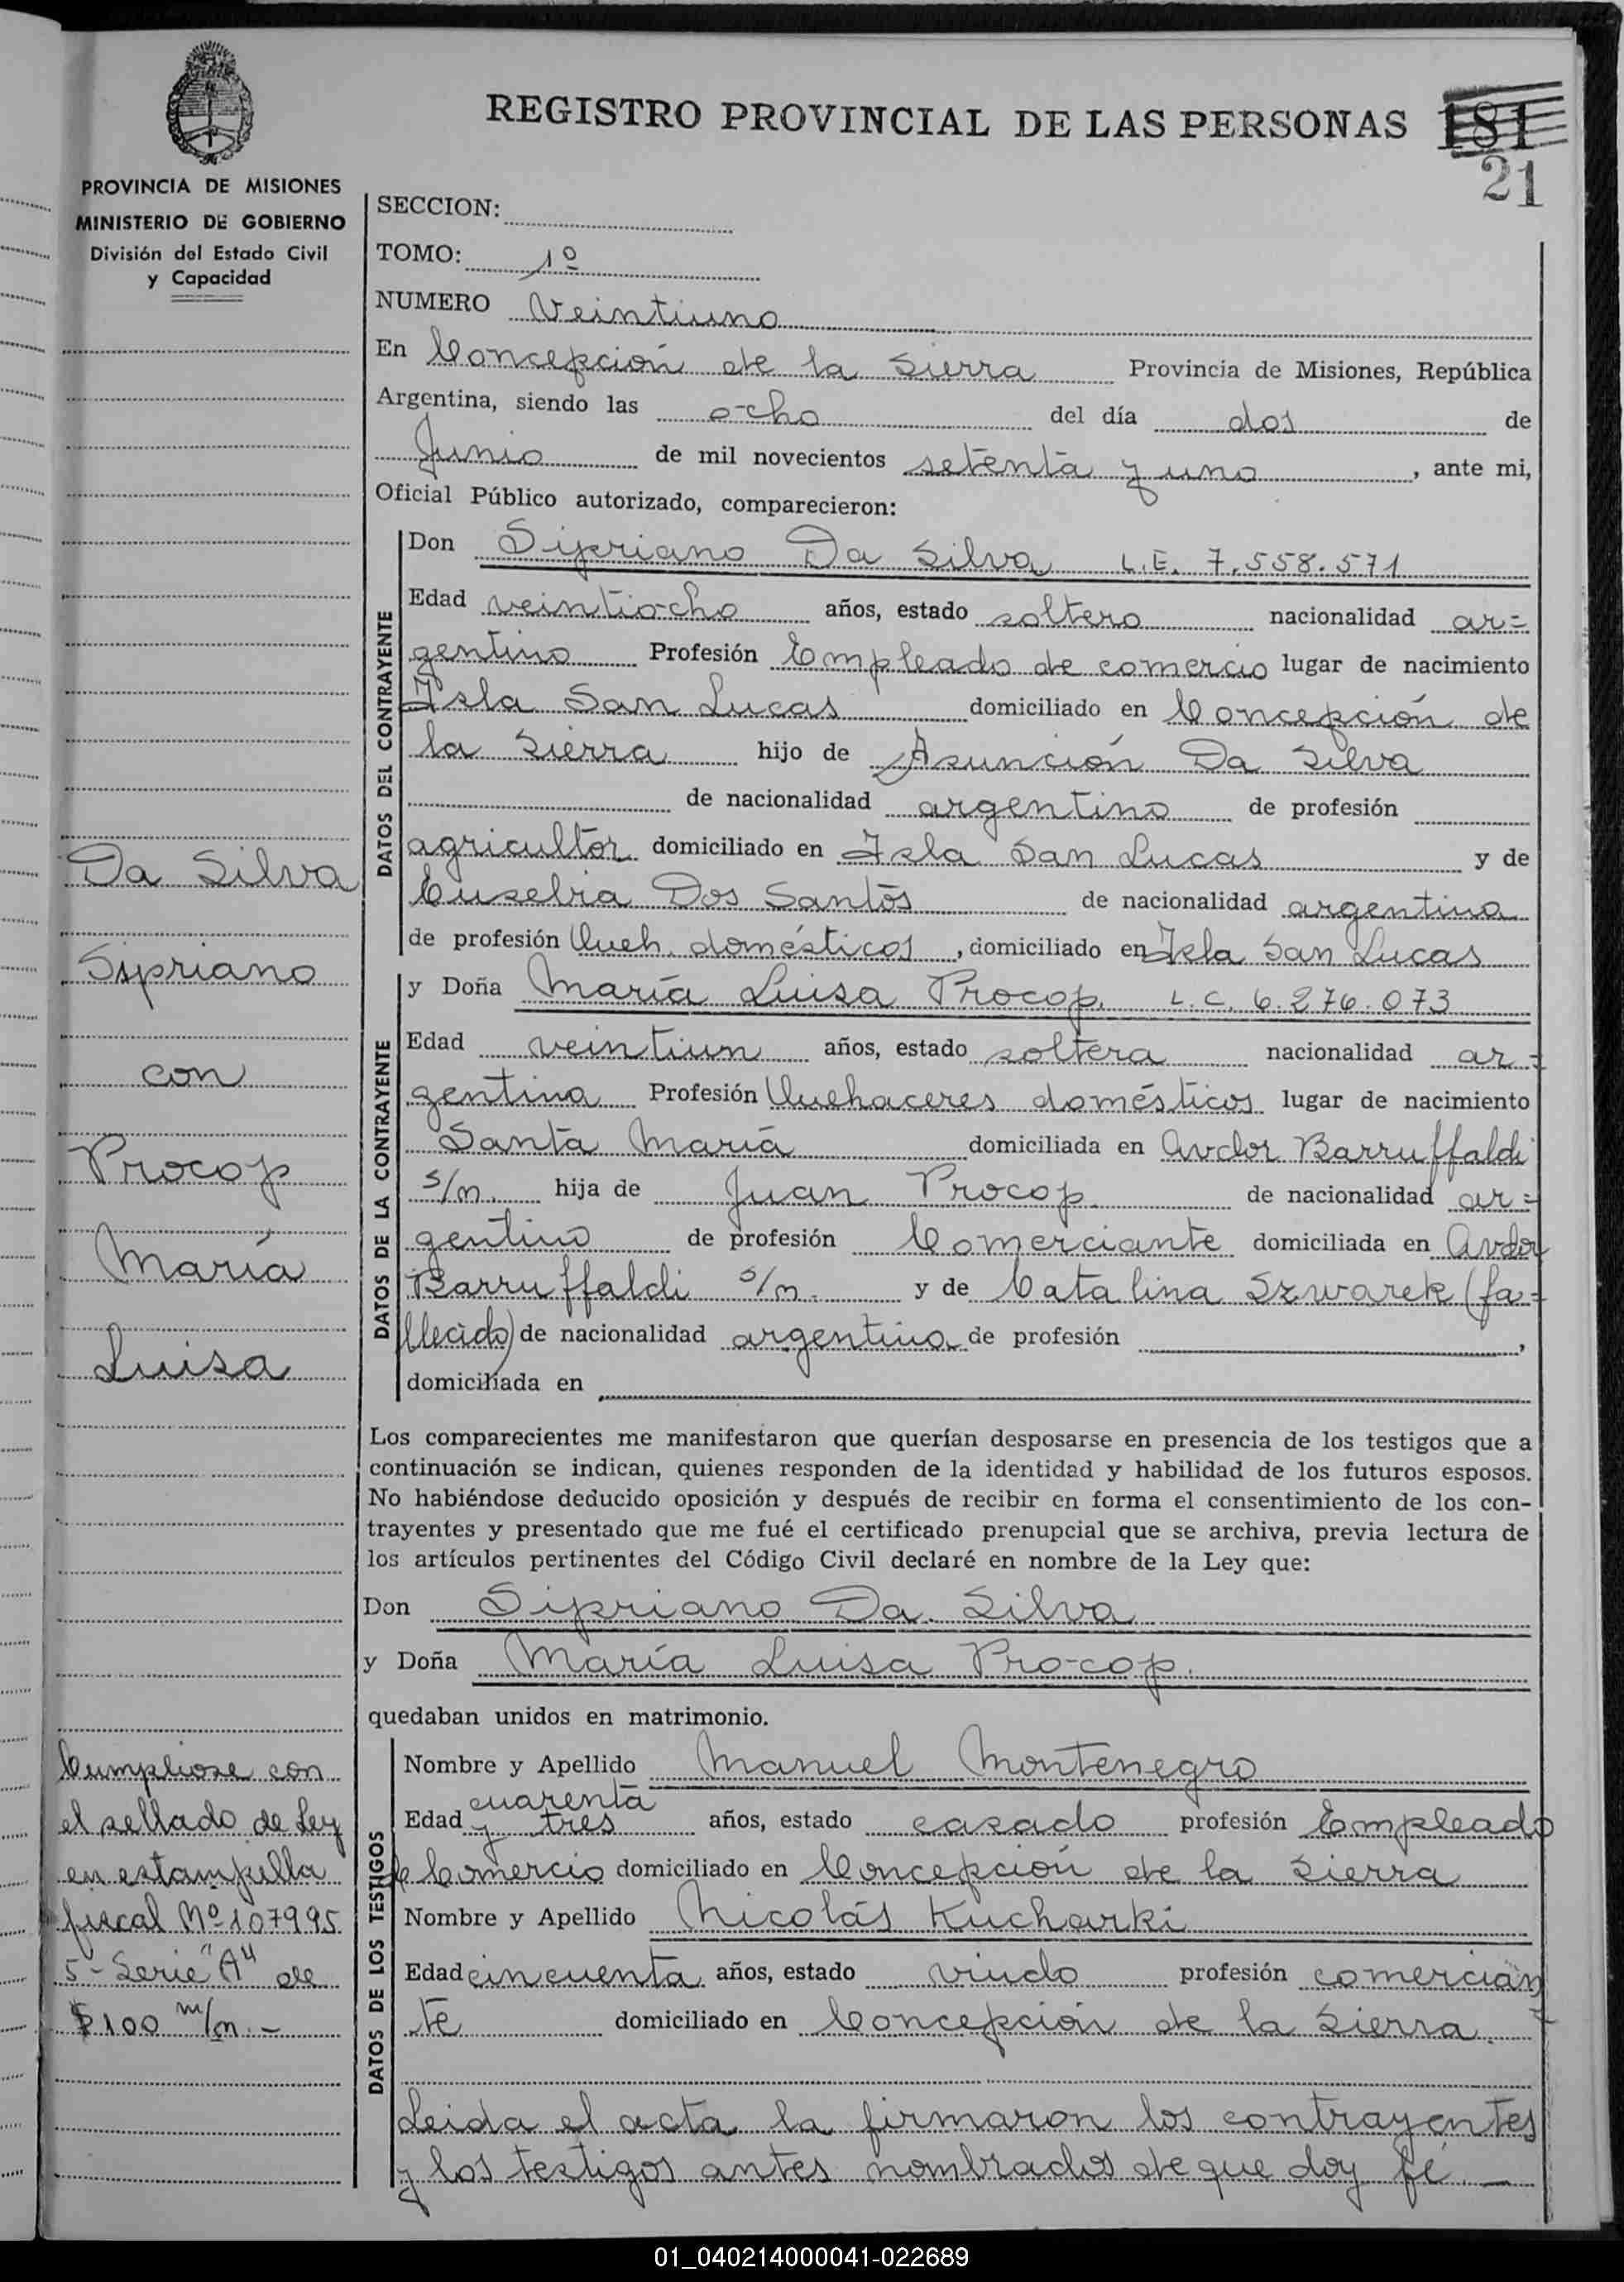 REGISTRO PROVINCIAL DE LAS PERSONAS 181
21
PROVINCIA DE MISIONES
MINISTERIO DE GOBIERNO
División del Estado Civil
y Capacidad
SECCION:
TOMO: 1º
NUMERO Veintiuno
En Concepción de la Sierra Provincia de Misiones, República
Argentina, siendo las ocho del día dos de
Junio de mil novecientos setenta y uno, ante mi,
Oficial Público autorizado, comparecieron:
DATOS DEL CONTRAYENTE
Don Sipriano Da Silva L.E. 7.558.571
Edad veintiocho años, estado soltero nacionalidad ar=
gentino Profesión Empleado de comercio lugar de nacimiento
Isla San Lucas domiciliado en Concepción de
la Sierra hijo de Asunción Da Silva
de nacionalidad argentino de profesión
agricultor domiciliado en Isla San Lucas y de
Eusebia Dos Santos de nacionalidad argentina
de profesión Queh. domésticos, domiciliado en Isla San Lucas
DATOS DE LA CONTRAYENTE
y Doña María Luisa Procop. L.C. 6.276.073
Edad veintiun años, estado soltera nacionalidad ar=
gentina Profesión Quehaceres domésticos lugar de nacimiento
Santa María domiciliada en Avdor Barruffaldi
s/n. hija de Juan Procop. de nacionalidad ar=
gentino de profesión Comerciante domiciliada en Avdor
Barruffaldi s/n. y de Catalina Szwarek (fa=
llecida) de nacionalidad argentina de profesión ,
domiciliada en
Los comparecientes me manifestaron que querían desposarse en presencia de los testigos que a
continuación se indican, quienes responden de la identidad y habilidad de los futuros esposos.
No habiéndose deducido oposición y después de recibir en forma el consentimiento de los con-
trayentes y presentado que me fué el certificado prenupcial que se archiva, previa lectura de
los artículos pertinentes del Código Civil declaré en nombre de la Ley que:
Don Sipriano Da Silva
y Doña María Luisa Procop.
quedaban unidos en matrimonio.
DATOS DE LOS TESTIGOS
Nombre y Apellido Manuel Montenegro
cuarenta
Edad y tres años, estado casado profesión Empleado
de Comercio domiciliado en Concepción de la Sierra
Nombre y Apellido Nicolás Kucharki
Edad cincuenta años, estado viudo profesión comercian
te domiciliado en Concepción de la Sierra.
Leida el acta la firmaron los contrayentes
y los testigos antes nombrados de que doy fé.—
Da Silva
Sipriano
con
Procop
María
Luisa
Cumpliose con
el sellado de Ley
en estampilla
fiscal Nº 107995
5- Serie "A" de
$100 m/n.-
01_040214000041-022689